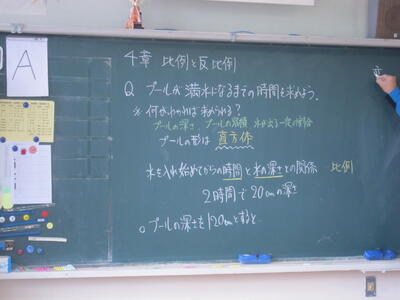 A
4章 比例と反比例
Q. プールが満水になるまでの時間を求めよう。
※何がわかれば求められる?
プールの深さ、プールの容積、水が出る一定の割合
プールの形は 直方体
水を入れ始めてからの時間と水の深さとの関係 比例
2時間で20cmの深さ
○プールの深さを120cmとすると